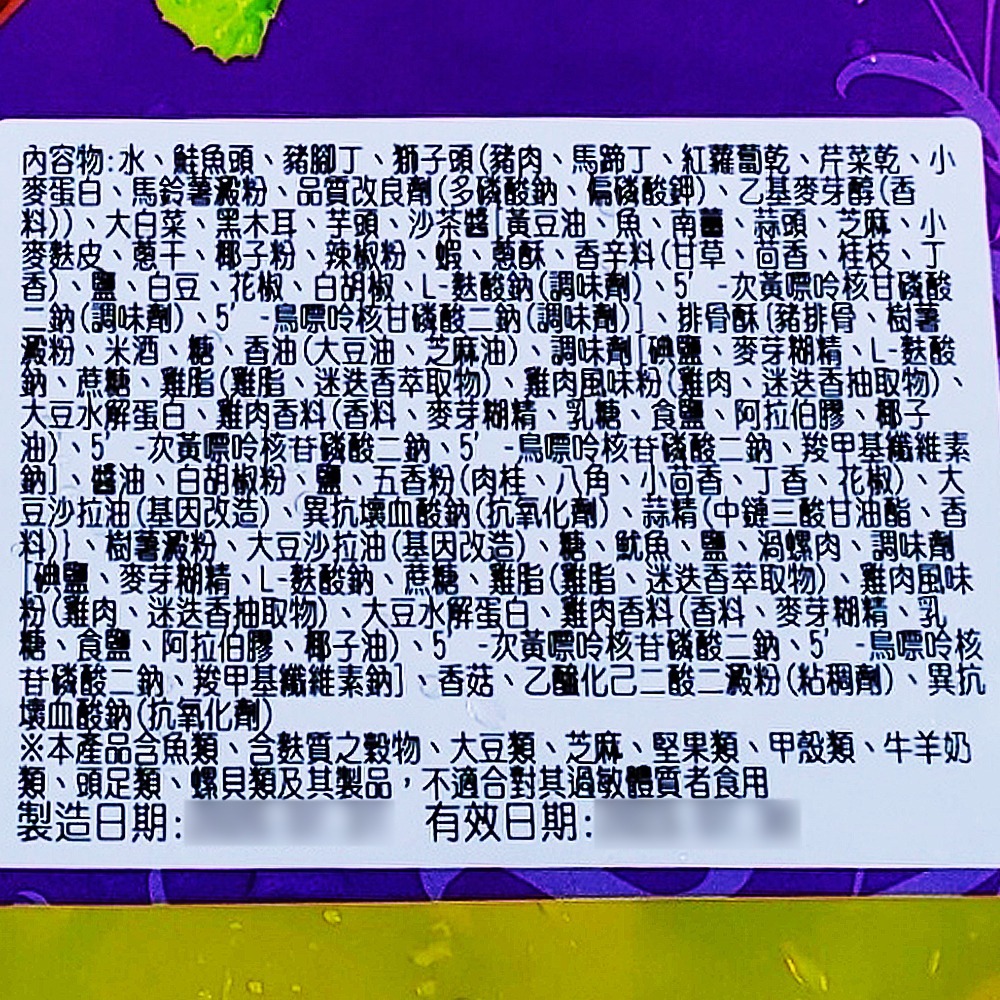 內容物:水、鮭魚頭、豬腳丁、獅子頭(豬肉、馬蹄丁、紅蘿蔔乾、芹菜乾、小
麥蛋白、馬鈴薯澱粉、品質改良劑(多磷酸鈉、偏磷酸鉀)、乙基麥芽醇(香
料))、大白菜、黑木耳、芋頭、沙茶醬[黃豆油、魚、南薑、蒜頭、芝麻、小
麥麩皮、蔥干、椰子粉、辣椒粉、蝦、蔥酥、香辛料(甘草、茴香、桂枝、丁
香)、鹽、白豆、花椒、白胡椒、L-麩酸鈉(調味劑)、5'-次黃嘌呤核甘磷酸
二鈉(調味劑)、5'-鳥嘌呤核甘磷酸二鈉(調味劑)]、排骨酥{豬排骨、樹薯
澱粉、米酒、糖、香油(大豆油、芝麻油)、調味劑[碘鹽、麥芽糊精、L-麩酸
鈉、蔗糖、雞脂(雞脂、迷迭香萃取物)、雞肉風味粉(雞肉、迷迭香抽取物)、
大豆水解蛋白、雞肉香料(香料、麥芽糊精、乳糖、食鹽、阿拉伯膠、椰子
油)、5'-次黃嘌呤核苷磷酸二鈉、5'-鳥嘌呤核苷磷酸二鈉、羧甲基纖維素
鈉]、醬油、白胡椒粉、鹽、五香粉(肉桂、八角、小茴香、丁香、花椒)、大
豆沙拉油(基因改造)、異抗壞血酸鈉(抗氧化劑)、蒜精(中鏈三酸甘油酯、香
料)}、樹薯澱粉、大豆沙拉油(基因改造)、糖、魷魚、鹽、渦螺肉、調味劑
[碘鹽、麥芽糊精、L-麩酸鈉、蔗糖、雞脂(雞脂、迷迭香萃取物)、雞肉風味
粉(雞肉、迷迭香抽取物)、大豆水解蛋白、雞肉香料(香料、麥芽糊精、乳
糖、食鹽、阿拉伯膠、椰子油)、5'-次黃嘌呤核苷磷酸二鈉、5'-鳥嘌呤核
苷磷酸二鈉、羧甲基纖維素鈉]、香菇、乙醯化己二酸二澱粉(粘稠劑)、異抗
壞血酸鈉(抗氧化劑)
※本產品含魚類、含麩質之穀物、大豆類、芝麻、堅果類、甲殼類、牛羊奶
類、頭足類、螺貝類及其製品，不適合對其過敏體質者食用
製造日期: 有效日期: